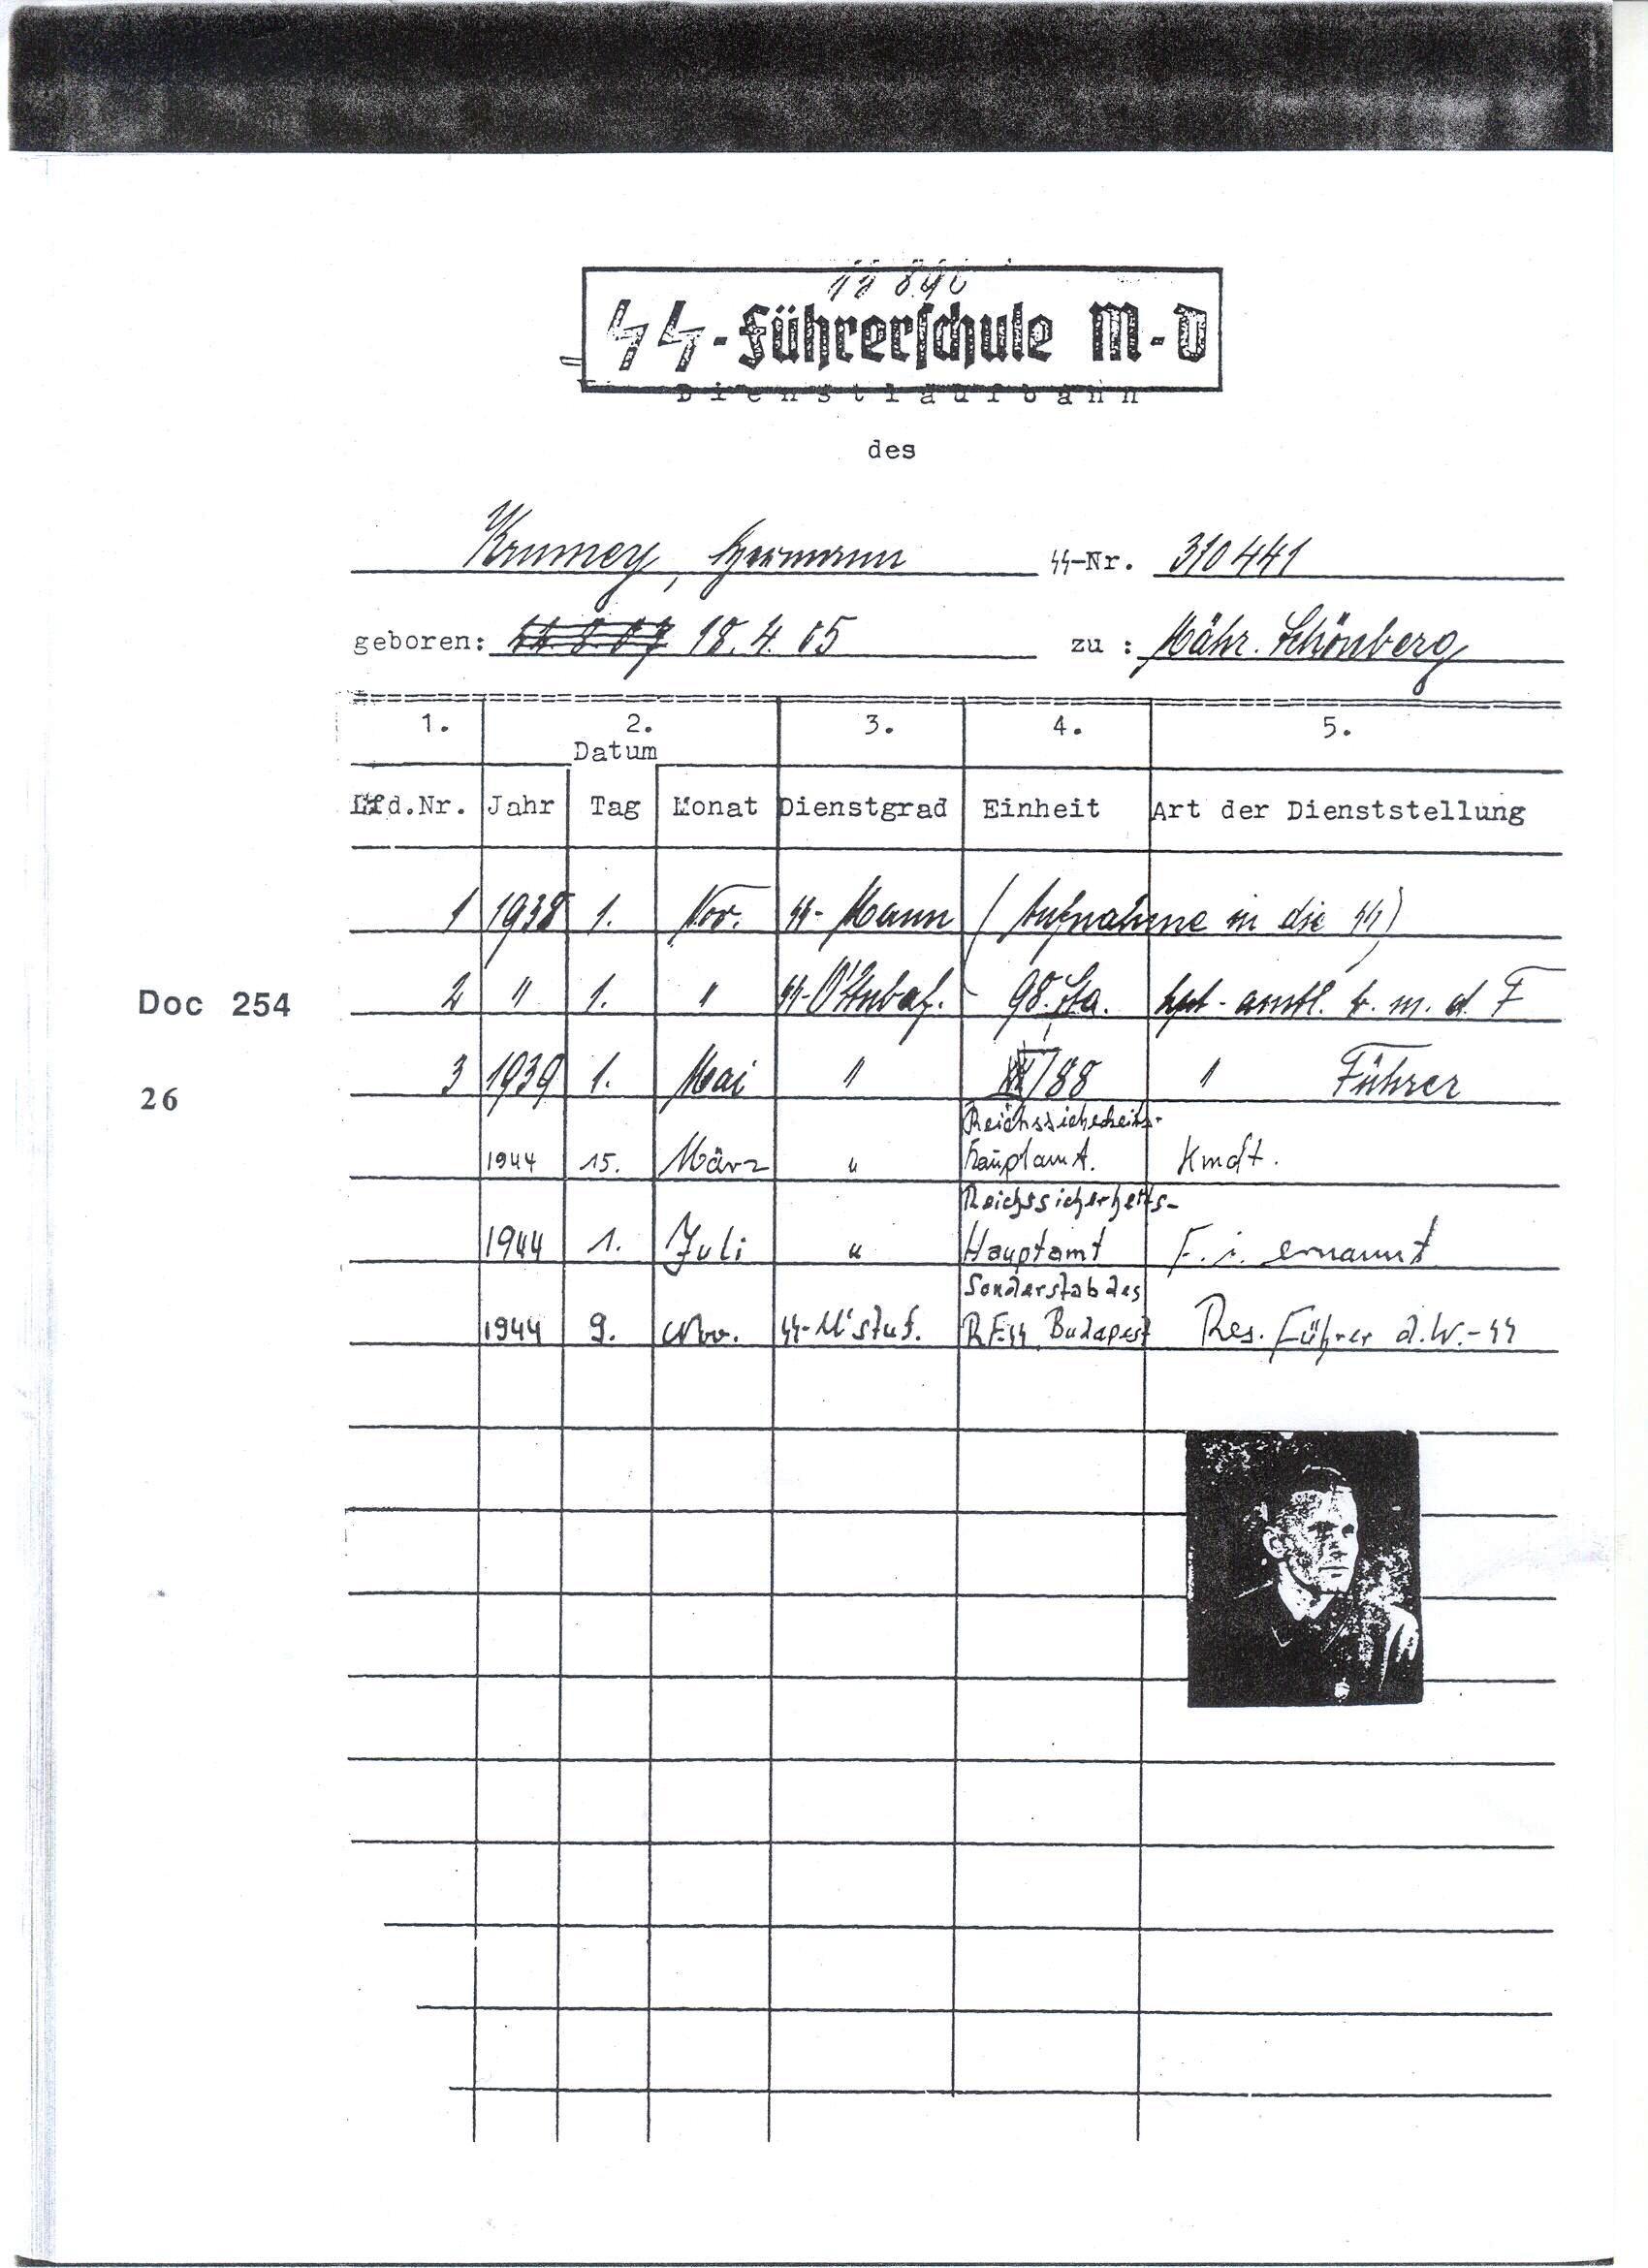 SS-Führerschule M-D
Dienstlaufbahn
des
Krumey, Hermann SS-Nr. 310441
geboren: 18.4.05 zu : Mähr. Schönberg
1. 2. 3. 4. 5.
Datum
Lfd.Nr. Jahr Tag Monat Dienstgrad Einheit Art der Dienststellung
1 1938 1. Nov. SS-Mann (Aufnahme in die SS)
Doc 254
2 " 1. " SS-O'Stubaf. 98. Sta. hpt-amtl. b. m. d. F
26
3 1939 1. Mai " /88 " Führer
Reichssicherheits-
1944 15. März " Hauptamt. Kmdt.
Reichssicherheits-
1944 1. Juli " Hauptamt F. i. ernannt
Sonderstab des
1944 9. Nov. SS-U'stuf. RFSS Budapest Res. Führer d.W.-SS